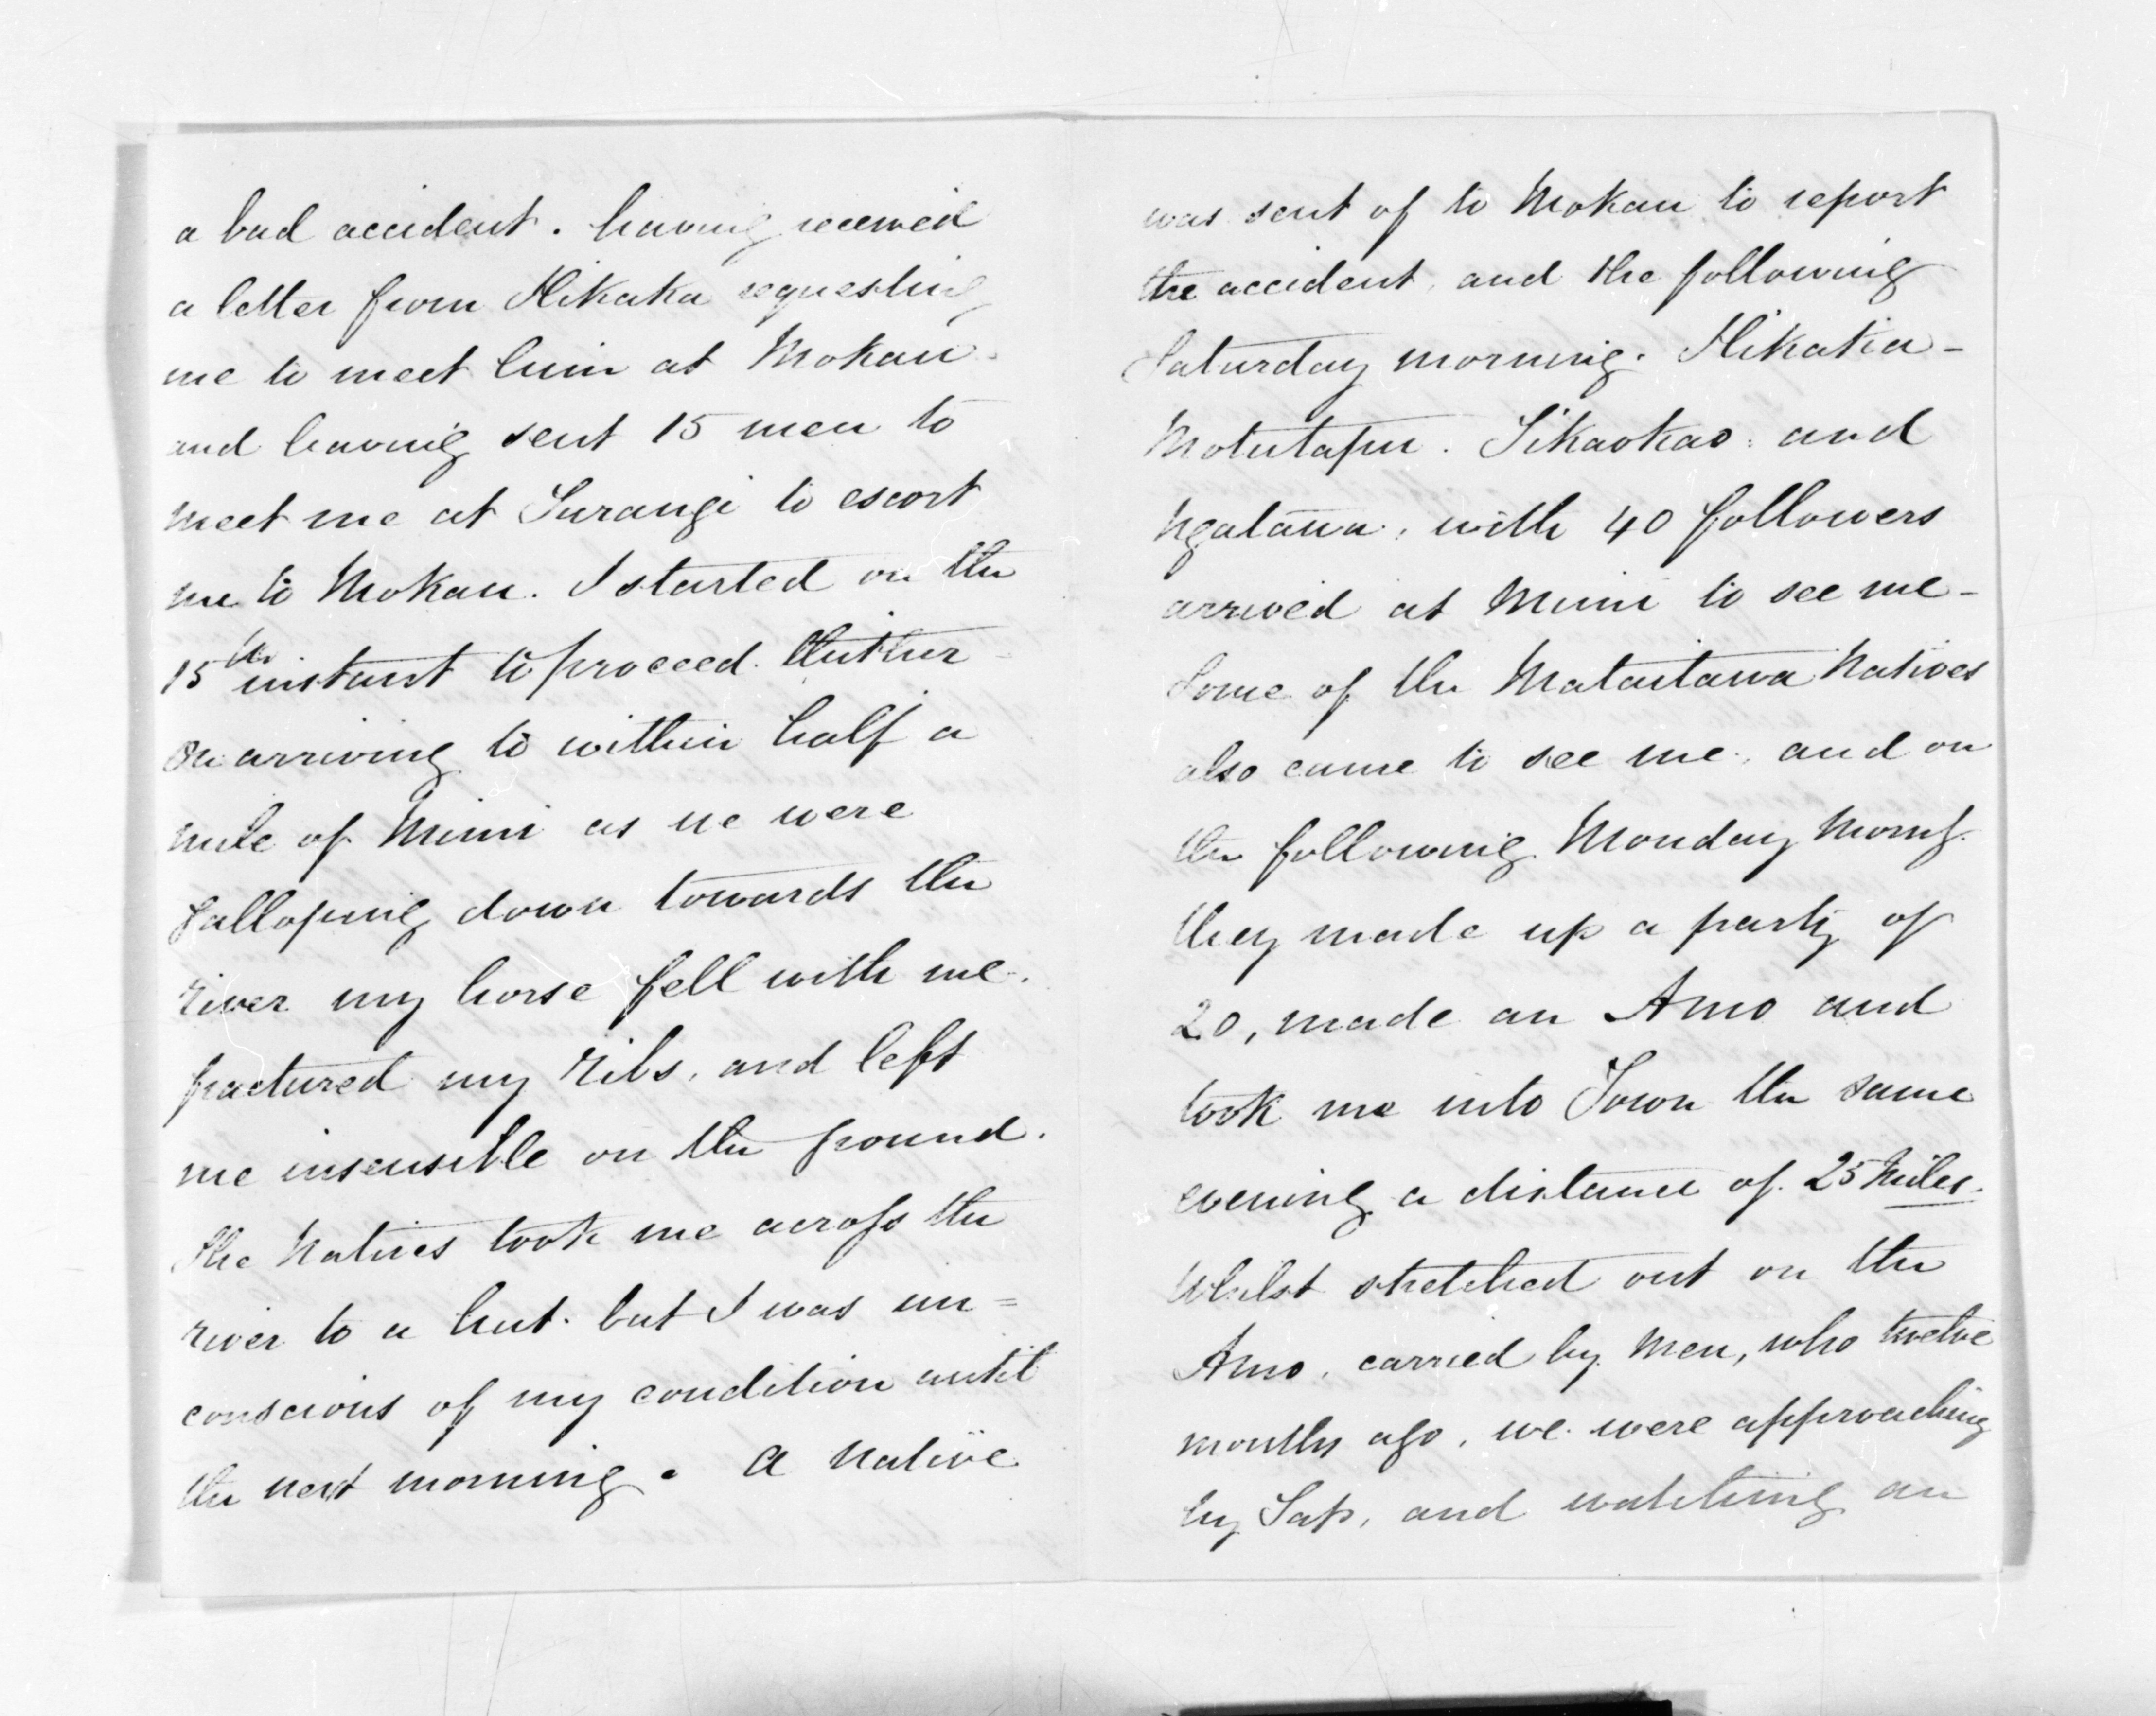 a bad accident. having received
a letter from Hikaka requesting
me to meet him at Mokau.
and having sent 15 men to
meet me at Turangi to escort
me to Mokau. I started on the
15th instant to proceed thither
on arriving to within half a
mile of Mimi as we were
galloping down towards the
river my horse fell with me.
fractured my ribs, and left
me insensible on the ground.
The Natives took me across the
river to a hut. but I was un=
conscious of my condition until
the next morning. A native
was sent of to Mokau to report
the accident, and the following
Saturday morning. Hikaka -
Motutapu. Tikaokao: and
Ngatawa, with 40 followers
arrived at Mimi to see me -
Some of the Mataitawa Natives
also came to see me, and on
the following Monday Morng.
they made up a party of
20, made an Amo and
took me into Town the same
evening a distance of 25 Miles.
Whilst stretched out on the
Amo, carried by Men, who twelve
months ago, we were approaching
by Sap, and watching an